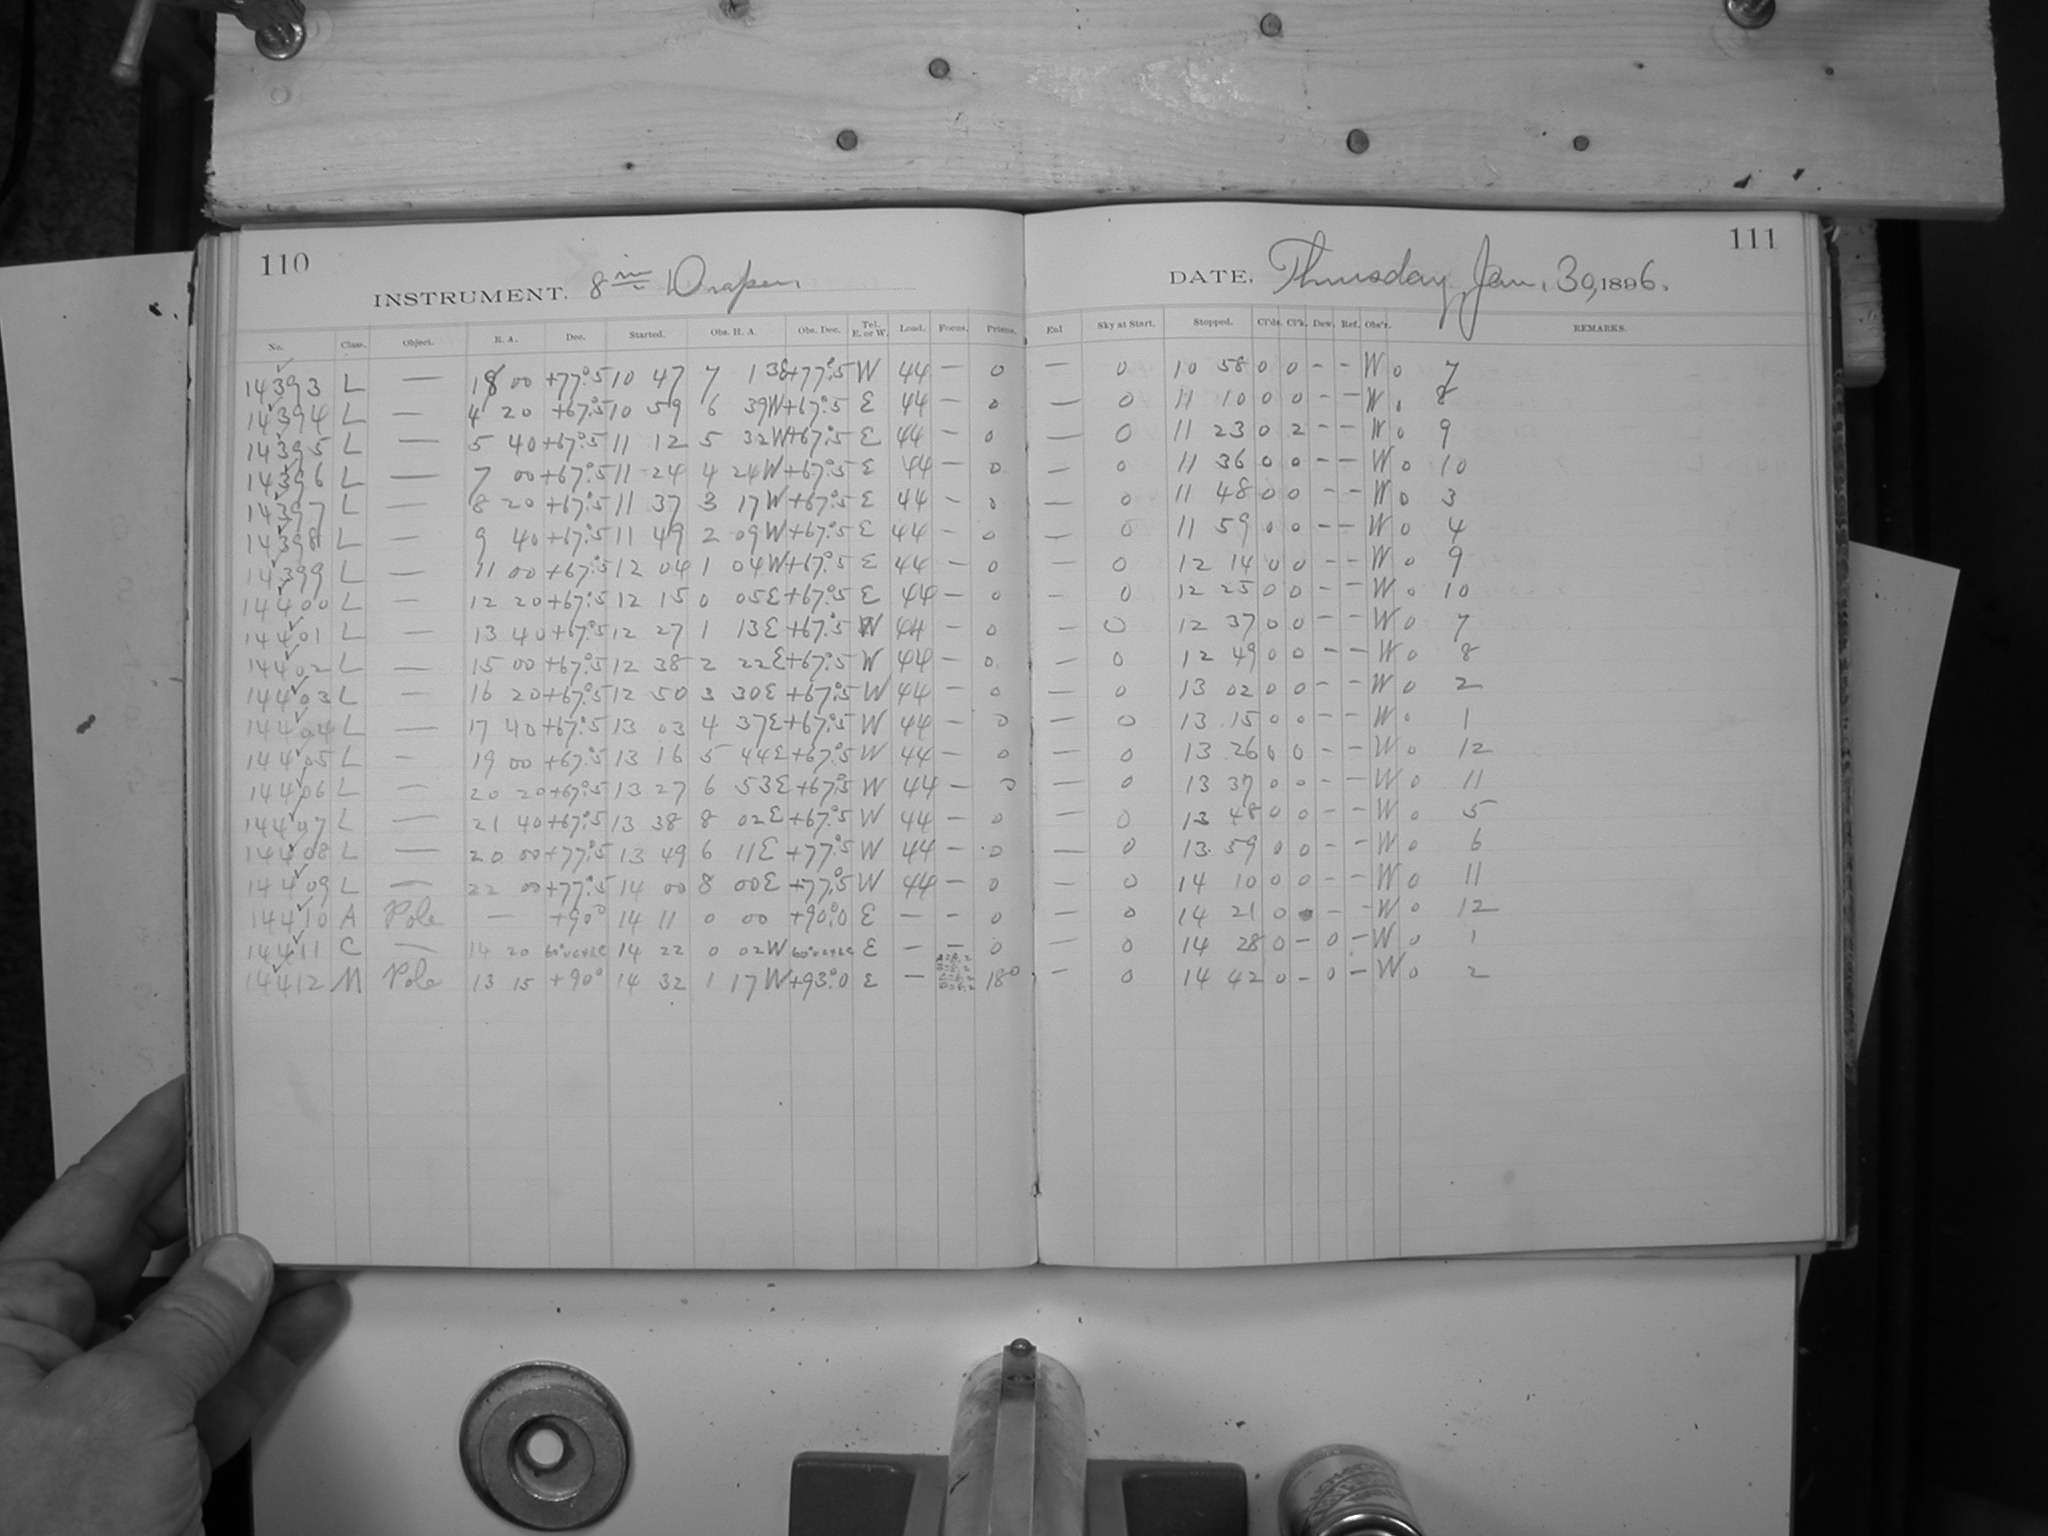 110
111
INSTRUMENT. 8 in Draper.
DATE. Thursday, Jan. 30, 1896.
No. Class. Object. R. A. Dec. Started. Obs. H. A. Obs. Dec. Tel. E. or W. Load. Focus. Prisms. Enl Sky at Start. Stopped. Cl'ds. Cl'k. Dew. Ref. Obs'r. REMARKS.
14393 L — 18 00 +77°.5 10 47 7 13E +77°.5 W 44 — 0 — 0 10 58 0 0 - - W 0 7
14394 L — 4 20 +67°.5 10 59 6 39W +67°.5 E 44 — 0 — 0 11 10 0 0 - - W 0 8
14395 L — 5 40 +67°.5 11 12 5 32W +67°.5 E 44 — 0 — 0 11 23 0 2 - - W 0 9
14396 L — 7 00 +67°.5 11 24 4 24W +67°.5 E 44 — 0 — 0 11 36 0 0 - - W 0 10
14397 L — 8 20 +67°.5 11 37 3 17W +67°.5 E 44 — 0 — 0 11 48 0 0 - - W 0 3
14398 L — 9 40 +67°.5 11 49 2 09W +67°.5 E 44 — 0 — 0 11 59 0 0 - - W 0 4
14399 L — 11 00 +67°.5 12 04 1 04W +67°.5 E 44 — 0 — 0 12 14 0 0 - - W 0 9
14400 L — 12 20 +67°.5 12 15 0 05E +67°.5 E 44 — 0 — 0 12 25 0 0 - - W 0 10
14401 L — 13 40 +67°.5 12 27 1 13E +67°.5 W 44 — 0 — 0 12 37 0 0 - - W 0 7
14402 L — 15 00 +67°.5 12 38 2 22E +67°.5 W 44 — 0 — 0 12 49 0 0 - - W 0 8
14403 L — 16 20 +67°.5 12 50 3 30E +67°.5 W 44 — 0 — 0 13 02 0 0 - - W 0 2
14404 L — 17 40 +67°.5 13 03 4 37E +67°.5 W 44 — 0 — 0 13 15 0 0 - - W 0 1
14405 L — 19 00 +67°.5 13 16 5 44E +67°.5 W 44 — 0 — 0 13 26 0 0 - - W 0 12
14406 L — 20 20 +67°.5 13 27 6 53E +67°.5 W 44 — 0 — 0 13 37 0 0 - - W 0 11
14407 L — 21 40 +67°.5 13 38 8 02E +67°.5 W 44 — 0 — 0 13 48 0 0 - - W 0 5
14408 L — 20 00 +77°.5 13 49 6 11E +77°.5 W 44 — 0 — 0 13 59 0 0 - - W 0 6
14409 L — 22 00 +77°.5 14 00 8 00E +77°.5 W 44 — 0 — 0 14 10 0 0 - - W 0 11
14410 A Pole — +90° 14 11 0 00 +90°.0 E — — 0 — 0 14 21 0 - - W 0 12
14411 C — 14 20 14 22 0 02W E — — 0 — 0 14 28 0 - 0 - W 0 1
14412 M Pole 13 15 +90° 14 32 1 17W +93°.0 E — 18° — 0 14 42 0 - 0 - W 0 2